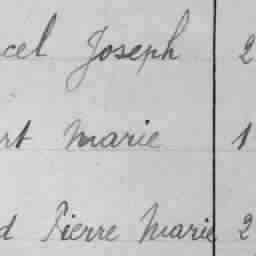 cel Joseph 2
rt Marie 1
d Pierre Marie 2